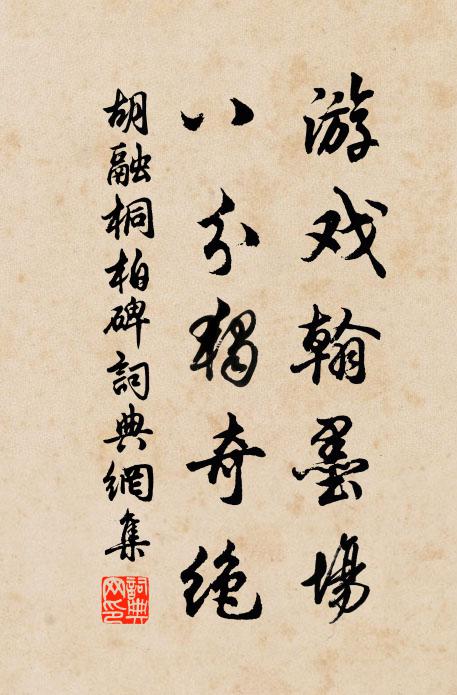 游戏翰墨場
八分独奇绝
胡融桐柏碑詞典網集
詞典网印